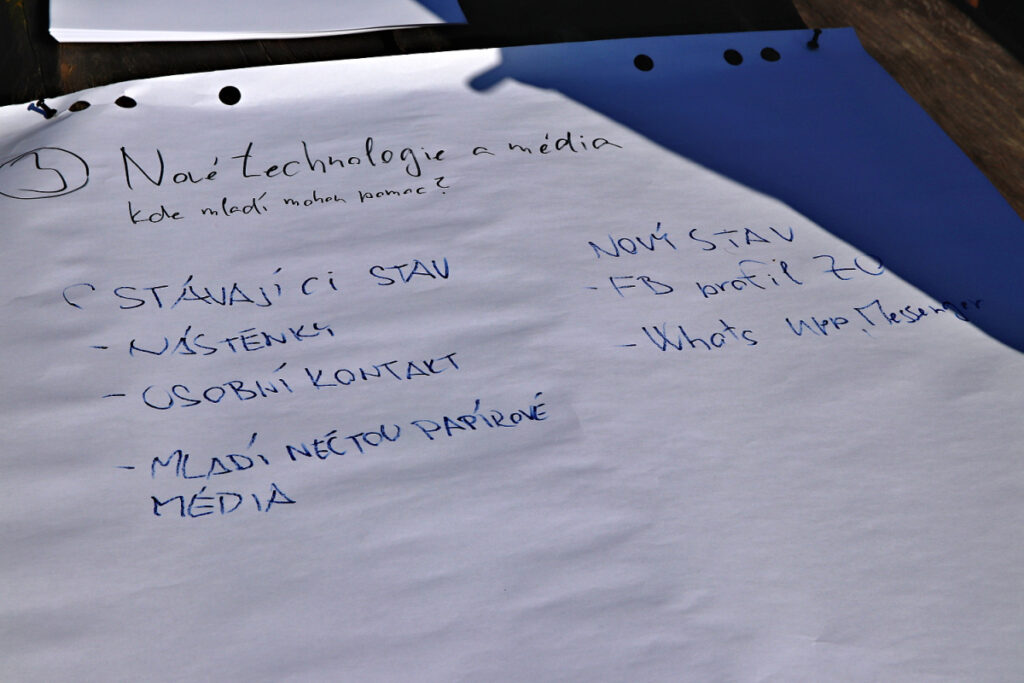 3 Nové technologie a média
kde mladí mohou pomoc?
STÁVAJÍCI STAV
- NÁSTĚNKY
- OSOBNÍ KONTAKT
- MLADÍ NEČTOU PAPÍROVÉ
MÉDIA
NOVÝ STAV
- FB profil ZO
- Whats upp, Messenger